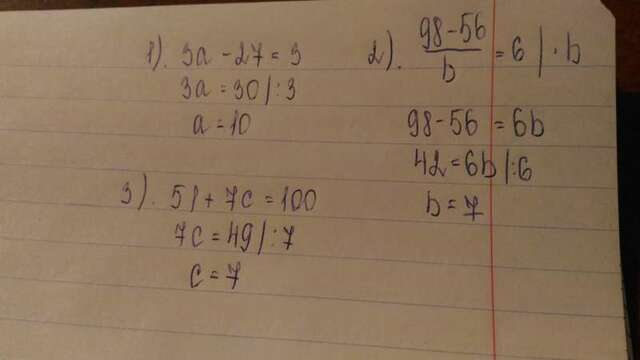 1). 3a - 27 = 3
3a = 30 | : 3
a = 10
2). 98 - 56 / b = 6 | · b
98 - 56 = 6b
42 = 6b | : 6
b = 7
3). 51 + 7c = 100
7c = 49 | : 7
c = 7